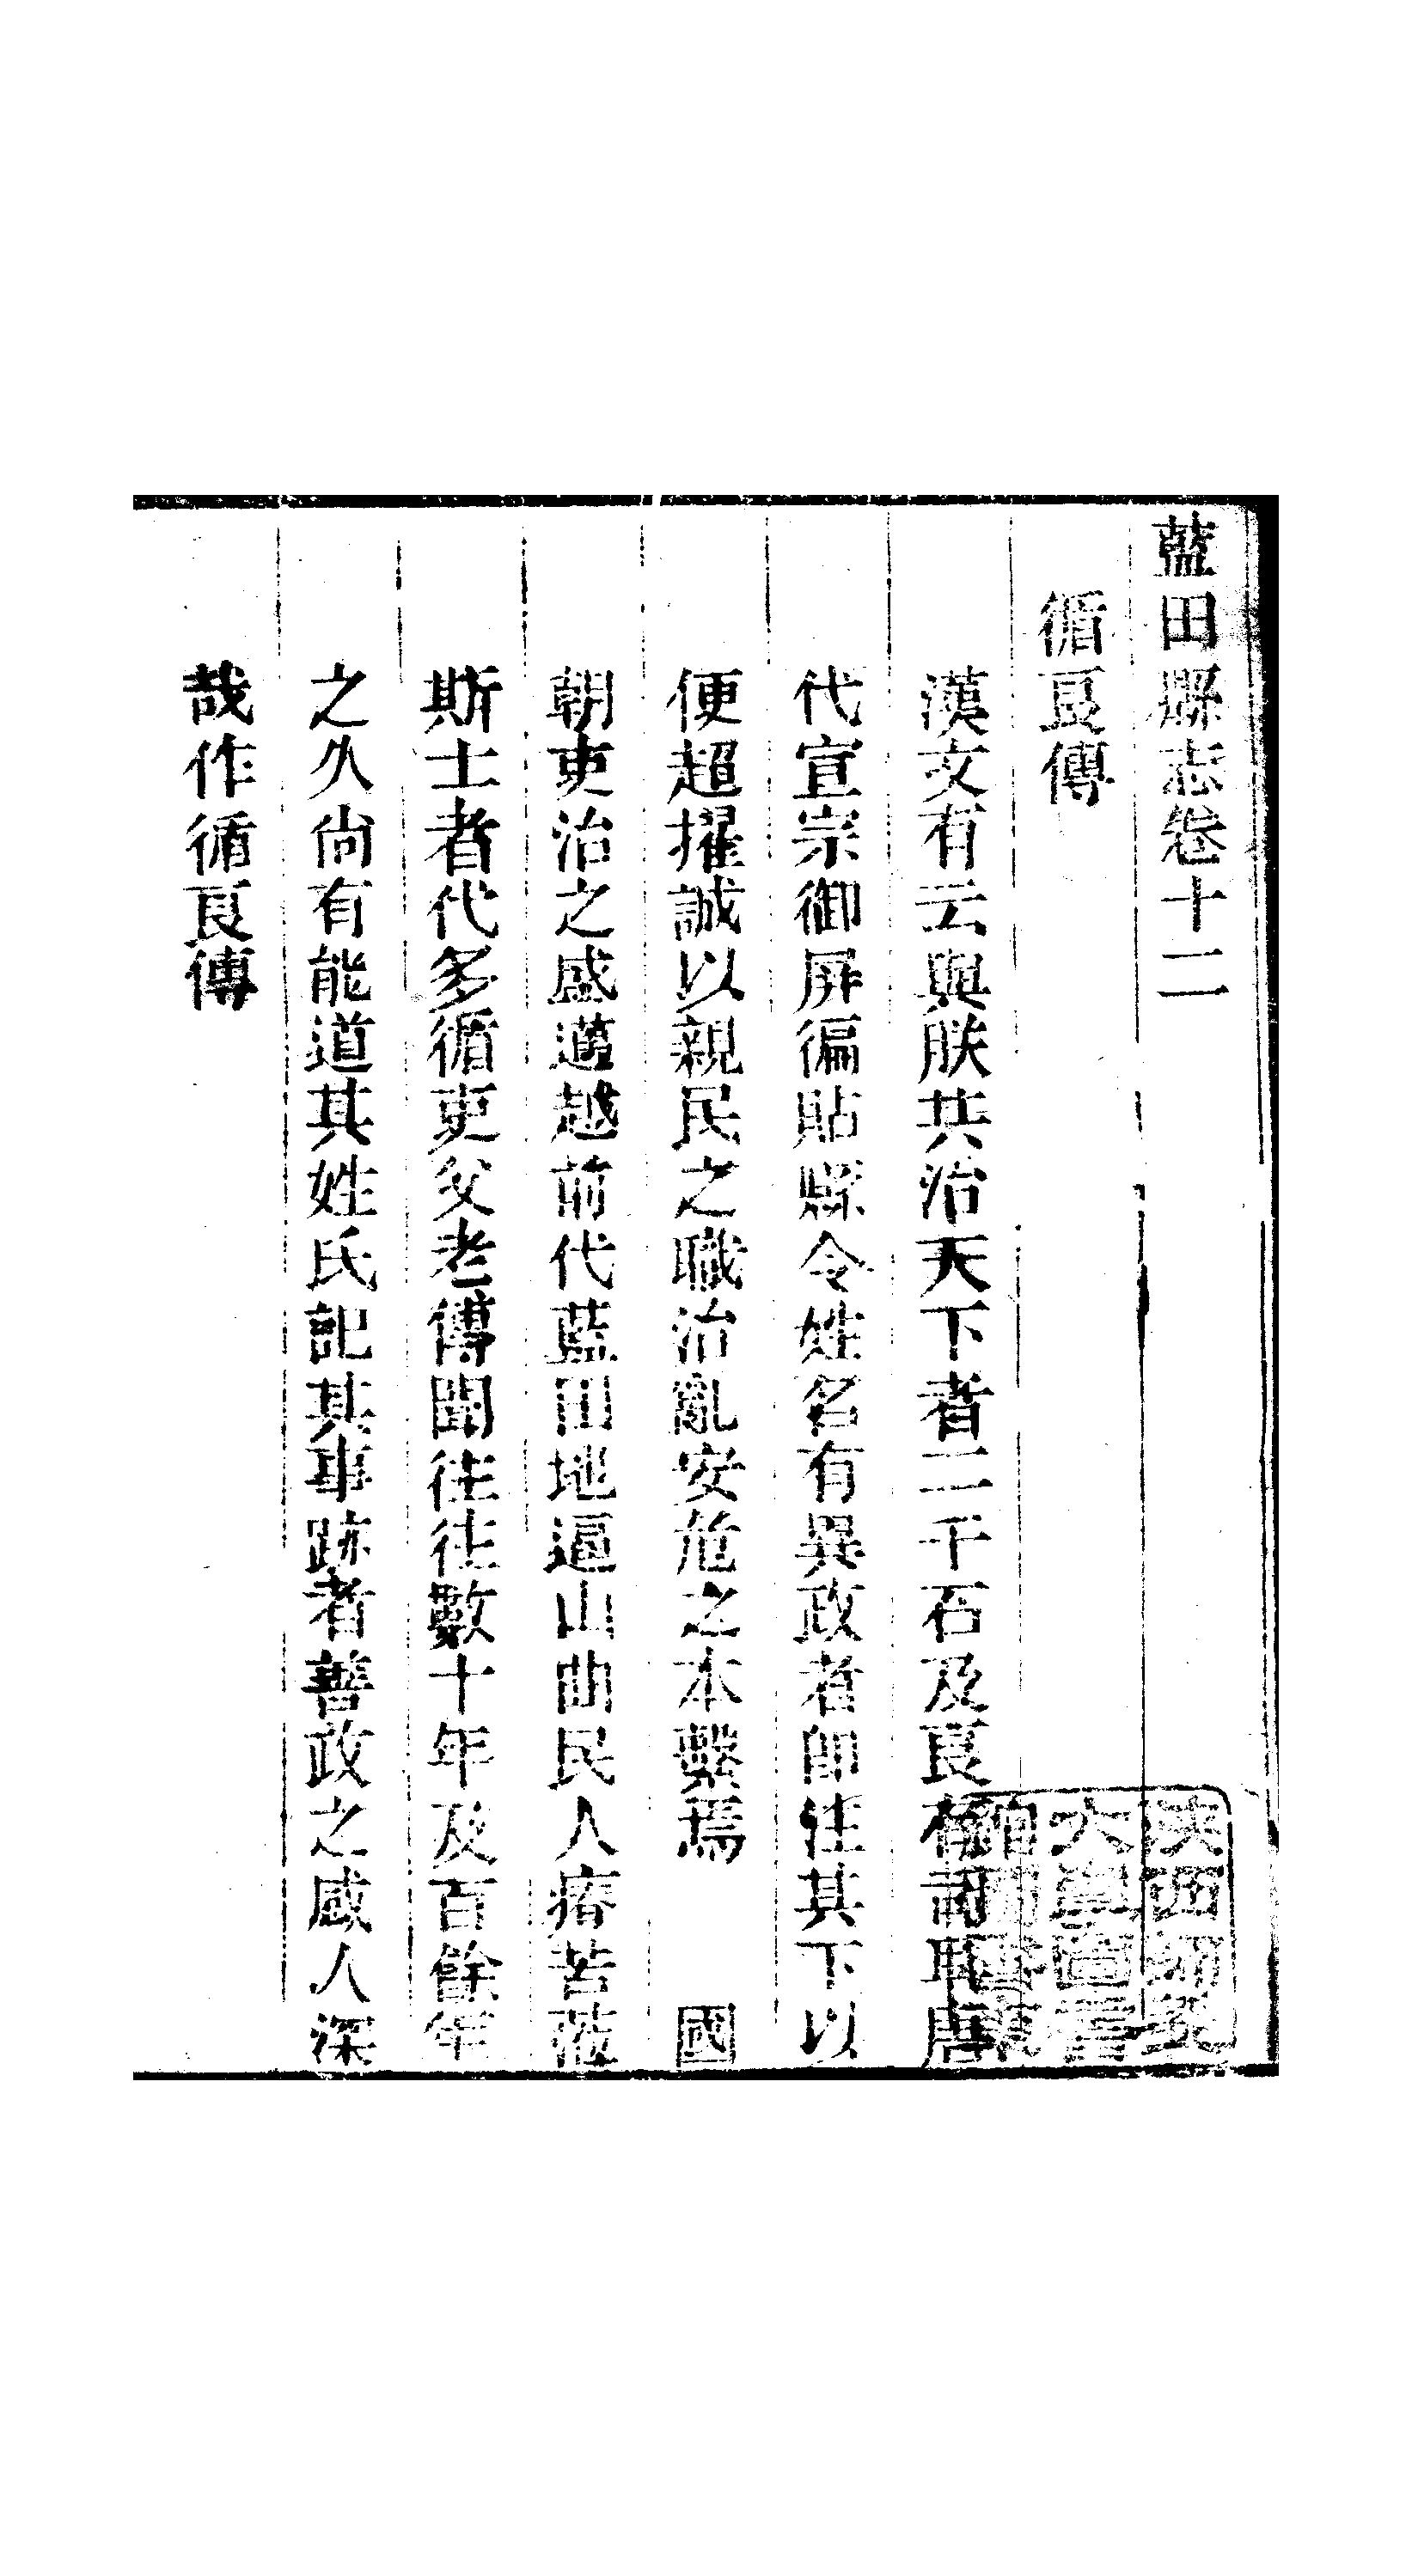 藍田縣志卷十二
循良傳
漢文有云與朕共治天下者二千石及良有司耳唐
代宣宗御屏徧貼縣令姓名有異政者即注其下以
便超擢誠以親民之職治亂安危之本繫焉　國
朝吏治之盛邁越前代藍田地逼山曲民人瘠苦蒞
斯土者代多循吏父老傳聞往往數十年及百餘年
之久尙有能道其姓氏記其事跡者善政之感人深
哉作循良傳
陝西師範
大學圖書
館圖書藏